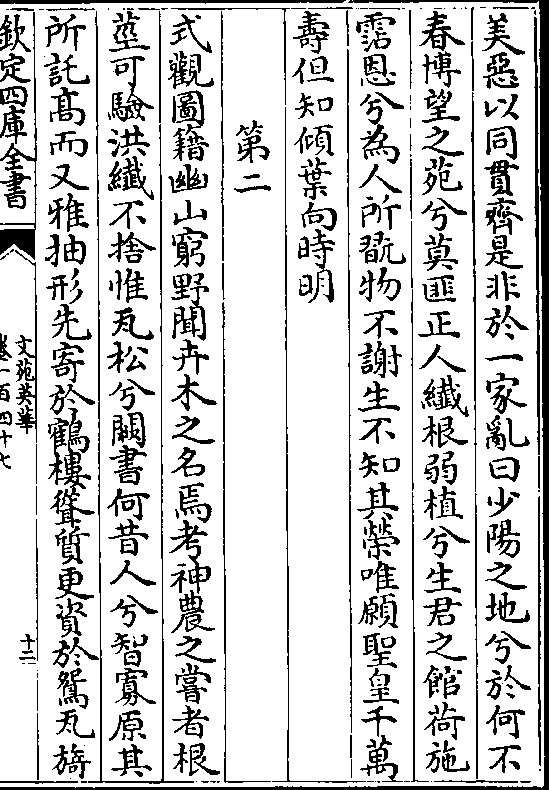 美惡以同貫齊是非於一家亂曰少陽之地兮於何不
春博望之苑兮莫匪正人纖根弱植兮生君之館荷施
霑恩兮為人所翫物不謝生不知其榮唯願聖皇千萬
壽但知傾葉向時明
第二
式觀圖籍幽山窮野聞卉木之名焉考神農之嘗者根
莖可驗洪纖不捨惟瓦松兮闕書何昔人兮智寡原其
所託髙而又雅抽形先寄於鶴樓聳質更資於鴛瓦旖
欽定四庫全書
文苑英華
卷一百四十七
十二